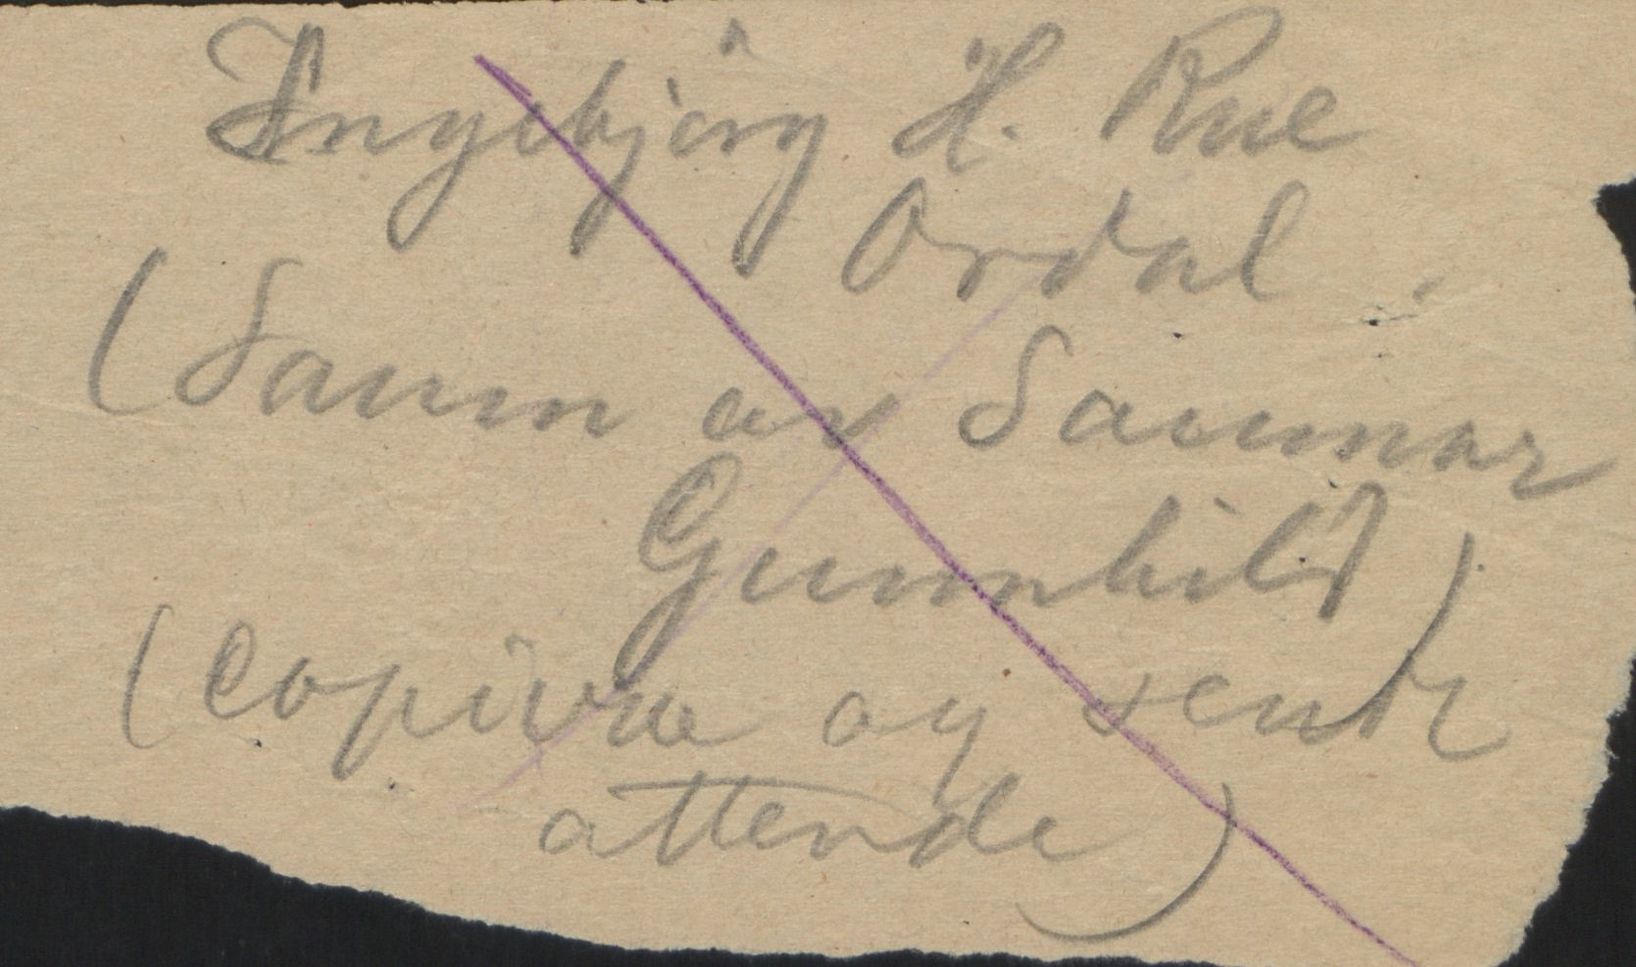 Ingebjörg H. Rue
Ordal.
(Saum av Saumar
Gunnhild)
(Copiera og sendt
attende)